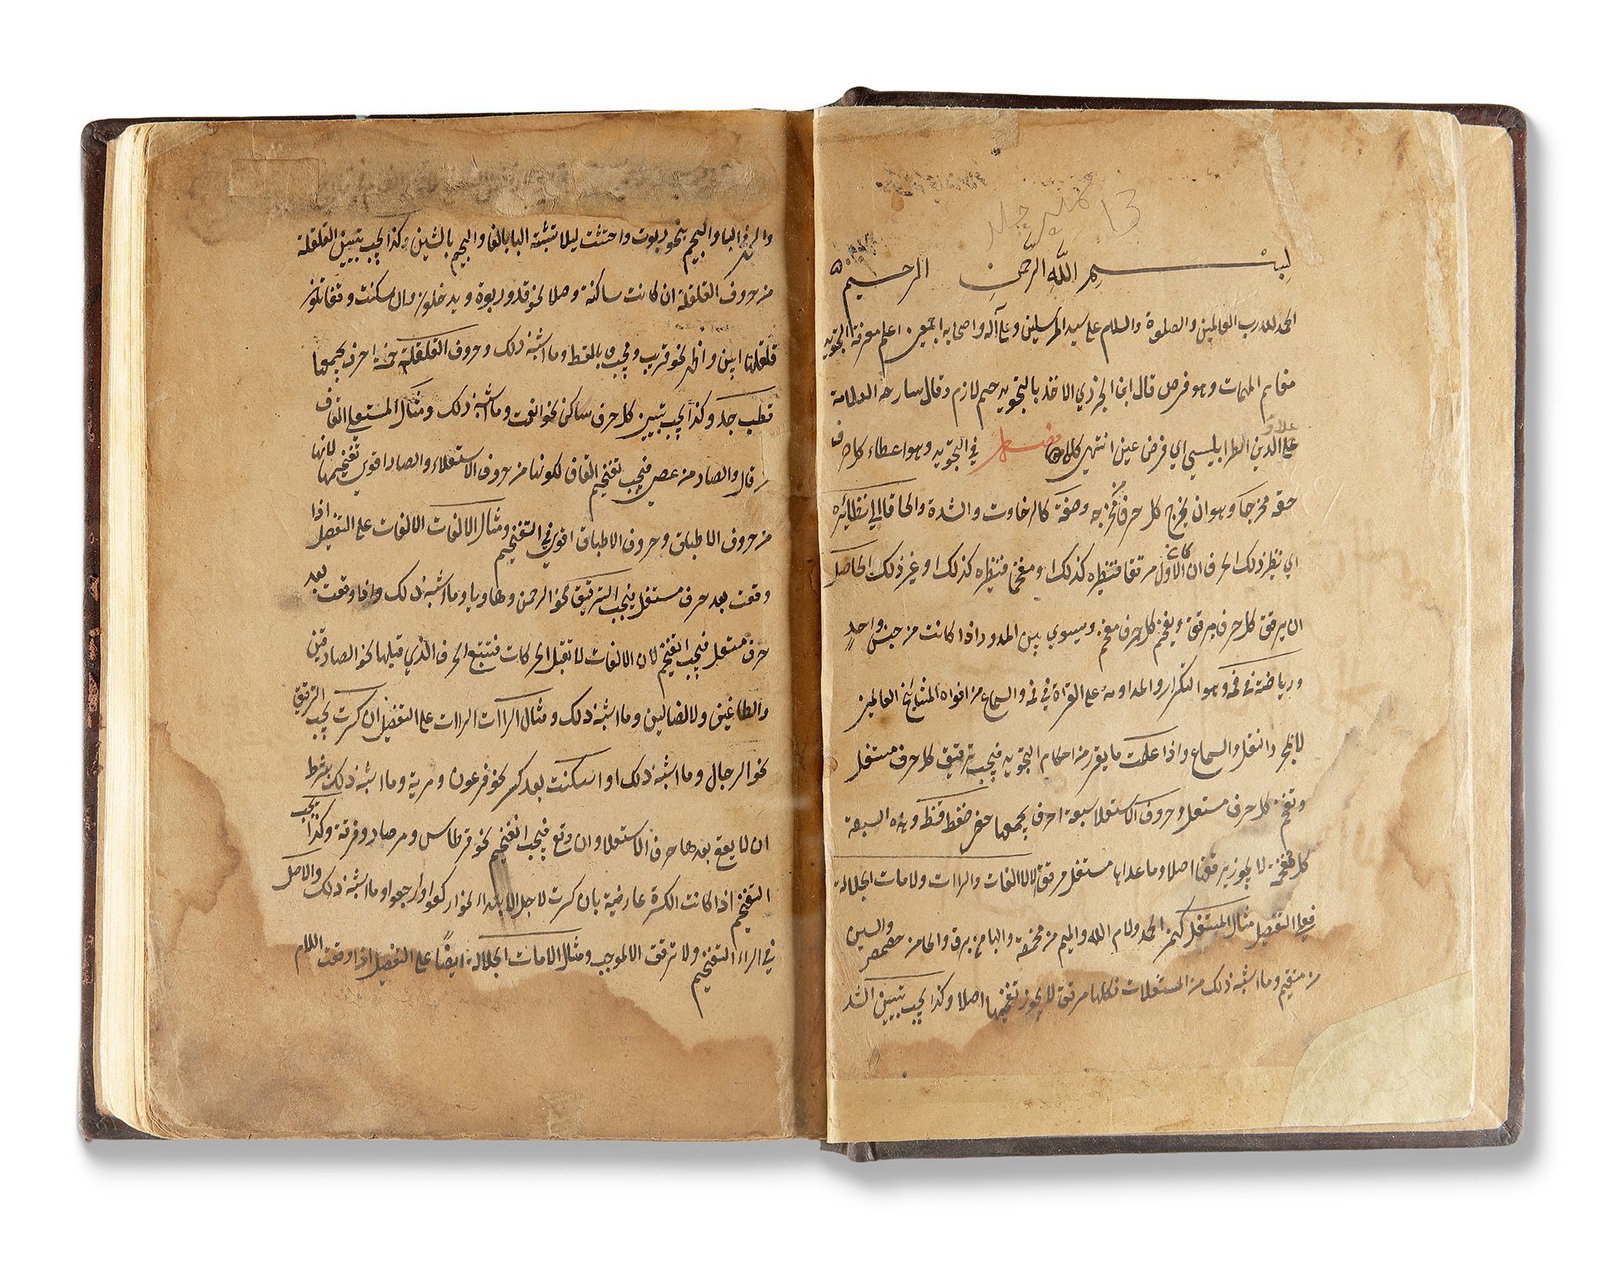 بسم الله الرحمن الرحيم
الحمد لله رب العالمين والصلوة والسلام على سيد المرسلين وعلى آله واصحابه اجمعين اعلم معرفة التجويد
من اهم المهمات وهو فرض قال ابن الجزري الاخذ بالتجويد حتم لازم وقال شارحه العلامة
علاء الدين الطرابلسي اي فرض عين انتهى كلامه في التجويد وهو اعطاء كل حرف
حقه مخرجا وهو ان يخرج كل حرف من مخرجه وصفة كالرخاوت والشدة والحاقا الى نظائره
اي نظير ذلك الحرف ان كان الاول مرققا فنظيره كذلك او مفخما فنظيره كذلك او غير ذلك الحاصل
ان يرقق كل حرف مرقق ويفخم كل حرف مفخم ويسوي بين المدود اذا كانت من جنس واحد
ورياضته في فمه وهو التكرار والمداومة على القراة في فمه والسماع من افواه المشايخ العالمين
لا بمجرد النقل والسماع واذا علمت ما يقرر من احكام التجويد فيجب ترقيق كل حرف مستفل
وتفخيم كل حرف مستعل وحروف الاستعلا سبعة احرف يجمعها خص ضغط قظ وهذه السبعة
كلها مفخمة لا يجوز ترقيقها اصلا وما عداها مستفل مرقق الا الالفات والراات ولامات الجلالة
فعلى التفصيل مثال المستفل كهمز الحمد ولام الله والميم من مخمصة والبا من برق والحا من حصحص والسين
من مستقيم وما اشبه ذلك من المستفلات فكلها مرقق لا يجوز تفخيمها اصلا وكذا يجب تبيين الشد
والجهر في البا والجيم نحو ربوت واجتثت ليلا تشبه البا بالفا والجيم بالشين وكذا يجب تبيين القلقلة
من حروف القلقلة ان كانت ساكنة وصلا نحو قد وربوة ويدخلون وان سكنت وقفا تكون
قلقلتها ابين واظهر نحو قريب ومحيط وما اشبه ذلك وحروف القلقلة خمسة احرف يجمعها
قطب جد وكذا يجب تبيين كل حرف ساكن نحو انعمت وما اشبه ذلك ومثال المستعلي القاف
من قال والصاد من عصى فيجب تفخيم القاف لكونها من حروف الاستعلاء والصاد اقوى تفخيمها لانها
من حروف الاطباق وحروف الاطباق اقوى في التفخيم ومثال الالفات الالفات على التفصيل اذا
وقعت بعد حرف مستفل فيجب الترقيق نحو الرحمن وها ويا وما اشبه ذلك واذا وقعت بعد
حرف مستعل فيجب التفخيم لان الالفات لا تقبل الحركات فتتبع الحرف الذي قبلها نحو الصادقين
والطاغين ولا الضالين وما اشبه ذلك ومثال الراآت الراات على التفصيل ان كسرت يجب الترقيق
نحو الرجال وما اشبه ذلك او اسكنت بعد كسر نحو فرعون ومرية وما اشبه ذلك بشرط
ان لا يقع بعدها حرف الاستعلا وان وقع فيجب التفخيم نحو قرطاس ومرصاد وفرقة وكذا يجب
التفخيم اذا كانت الكسرة عارضية بان كسرت لاجل الابتداء نحو اركعوا وارجعوا وما اشبه ذلك والاصل
في الراء التفخيم ولا ترقق الا لموجب ومثال لامات الجلالة ايضا على التفصيل اذا وقعت اللام